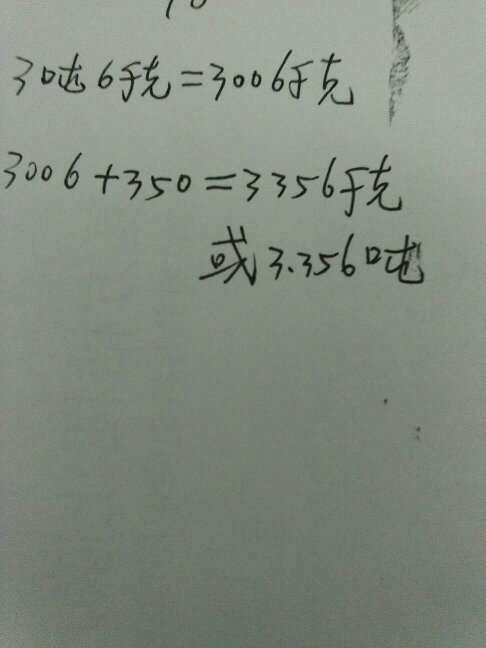 3吨6千克=3006千克
3006+350=3356千克
或3.356吨